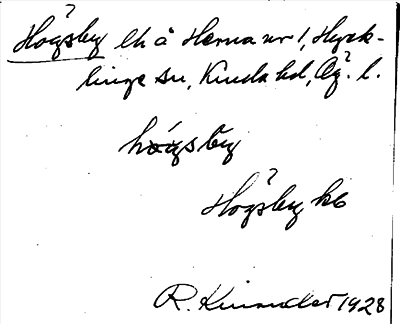 Högsby lh å Herna nr 1, Hyck-
linge sn, Kinda hd, Ög. l.
högsby
Högsby hb
R. Kinander 1928